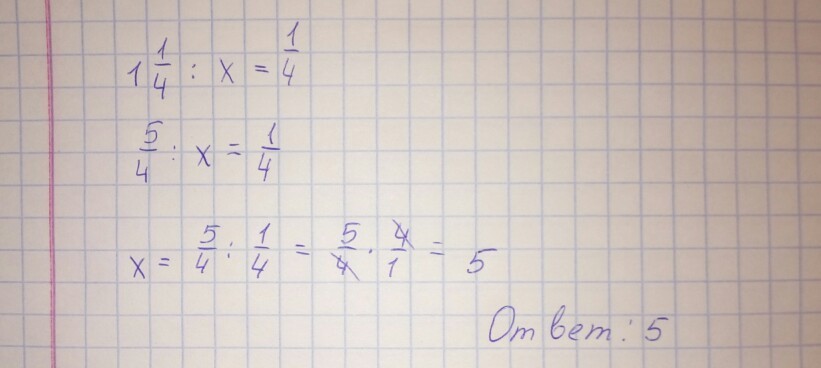 1 1/4 : x = 1/4
5/4 : x = 1/4
x = 5/4 : 1/4 = 5/4 · 4/1 = 5
Ответ: 5